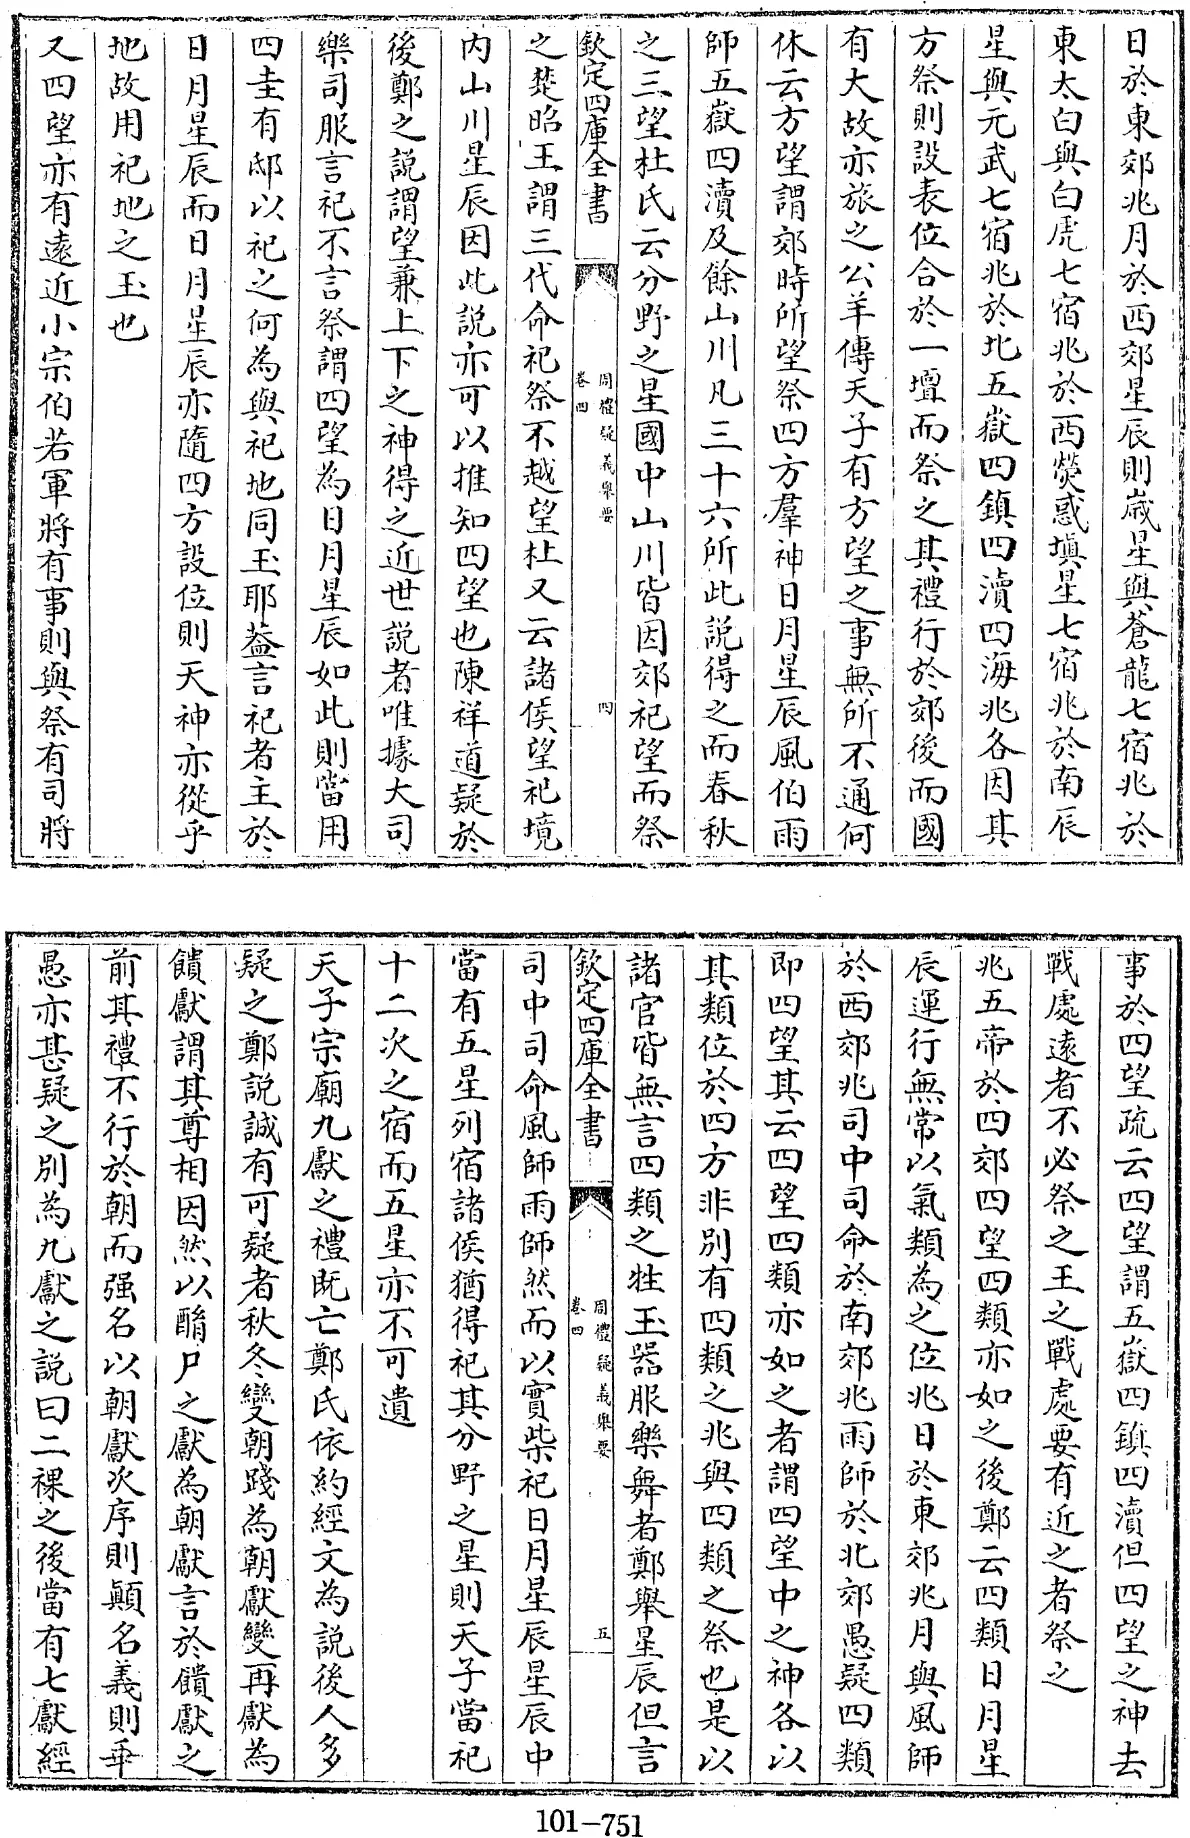 日於東郊兆月於西郊星辰則歲星與蒼龍七宿兆於
東太白與白虎七宿兆於西熒惑塡星七宿兆於南辰
星與元武七宿兆於北五嶽四鎮四瀆四海兆各因其
方祭則設表位合於一壇而祭之其禮行於郊後而國
有大故亦旅之公羊傳天子有方望之事無所不通何
休云方望謂郊時所望祭四方羣神日月星辰風伯雨
師五嶽四瀆及餘山川凡三十六所此説得之而春秋
之三望杜氏云分野之星國中山川皆因郊祀望而祭
欽定四庫全書
周禮疑義舉要
卷四
四
之楚昭王謂三代命祀祭不越望杜又云諸侯望祀境
内山川星辰因此説亦可以推知四望也陳祥道疑於
後鄭之説謂望兼上下之神得之近世説者唯據大司
樂司服言祀不言祭謂四望為日月星辰如此則當用
四圭有邸以祀之何為與祀地同玉耶葢言祀者主於
日月星辰而日月星辰亦隨四方設位則天神亦從乎
地故用祀地之玉也
又四望亦有遠近小宗伯若軍將有事則與祭有司將
事於四望疏云四望謂五嶽四鎮四瀆但四望之神去
戰處遠者不必祭之王之戰處要有近之者祭之
兆五帝於四郊四望四類亦如之後鄭云四類日月星
辰運行無常以氣類為之位兆日於東郊兆月與風師
於西郊兆司中司命於南郊兆雨師於北郊愚疑四類
即四望其云四望四類亦如之者謂四望中之神各以
其類位於四方非別有四類之兆與四類之祭也是以
諸官皆無言四類之牲玉器服樂舞者鄭舉星辰但言
欽定四庫全書
周禮疑義舉要
卷四
五
司中司命風師雨師然而以實柴祀日月星辰星辰中
當有五星列宿諸侯猶得祀其分野之星則天子當祀
十二次之宿而五星亦不可遺
天子宗廟九獻之禮既亡鄭氏依約經文為說後人多
疑之鄭説誠有可疑者秋冬變朝踐為朝獻變再獻為
饋獻謂其尊相因然以酳尸之獻為朝獻言於饋獻之
前其禮不行於朝而强名以朝獻次序則顚名義則乖
愚亦甚疑之別為九獻之説曰二祼之後當有七獻經
101-751